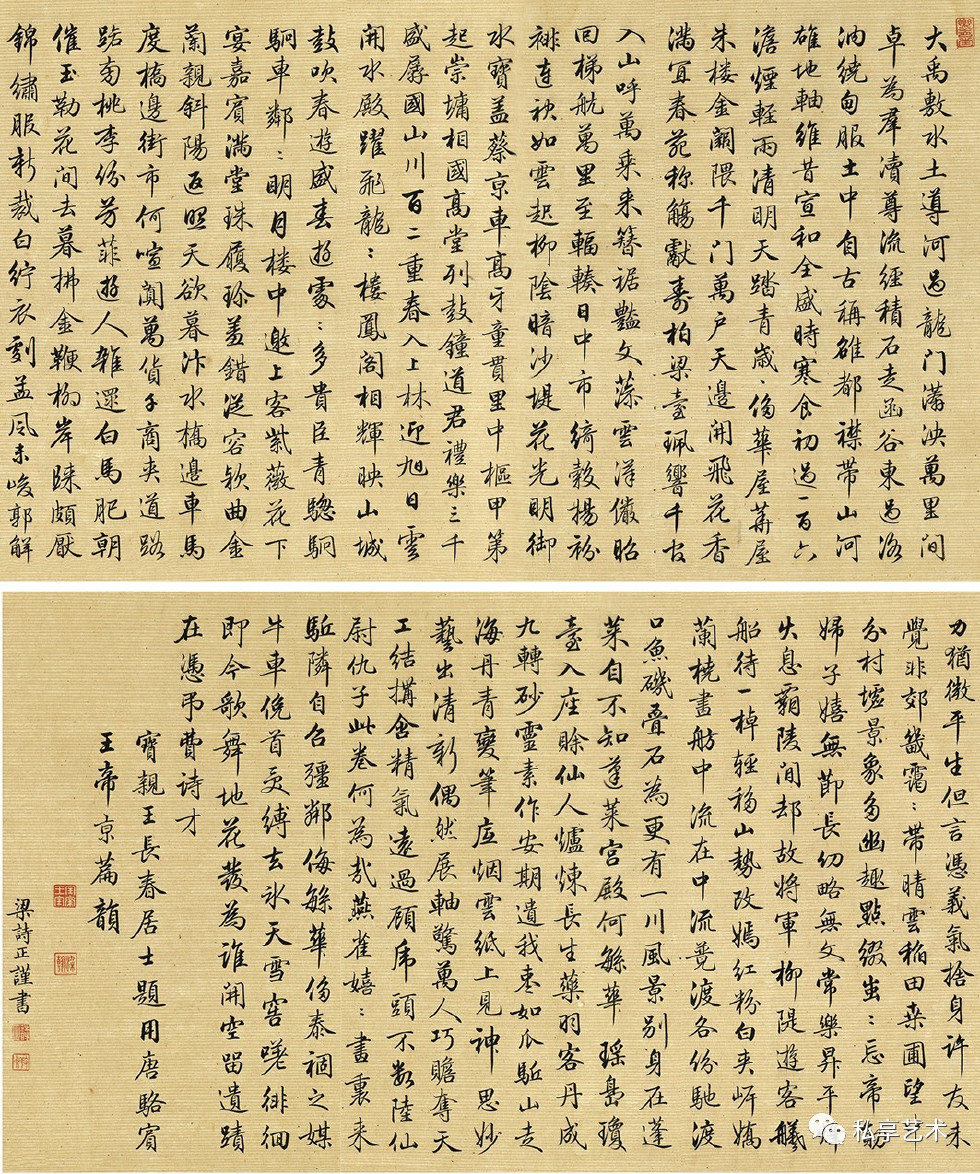 大禹敷水土導河過龍門漭泱萬里間
卓為羣瀆尊流經積石走函谷東過洛
汭繞甸服土中自古稱雒都襟帶山河
雄地軸維昔宣和全盛時寒食初過一百六
澹煙輕雨清明天踏青歲〻侈華屋華屋
朱樓金闕隈千門萬戶天邊開飛花香
滿宜春苑稱觴獻壽柏梁臺珮響千官
入山呼萬乘来簪裾豔文藻雲漢儼昭
回梯航萬里至輻輳日中市綺縠揚紛
連袂如雲起柳陰暗沙堤花光明御
水寶蓋蔡京車高牙童貫里中樞甲第
起崇墉相國高堂列鼓鐘道君禮樂三千
盛孱國山川百二重春入上林迎旭日雲
開水殿躍飛龍〻樓鳳閣相輝映山城
鼓吹春遊盛春遊處〻多貴臣青驄駟
車鄰〻明月樓中邀上客紫薇花下
宴嘉賓滿堂珠履珍羞錯從容欵曲金
蘭親斜陽返照天欲暮汴水橋邊車馬
度橋邊街市何喧闐萬貨千商夾道路
南桃李紛芳菲遊人雜遝白馬肥朝
催玉勒花間去暮拂金鞭柳岸歸頗厭
錦繡服新裁白紵衣劇孟風未峻郭解
力猶微平生但言憑義氣捨身許友未
覺非郊畿靄〻帶晴雲稻田桑圃望中
分村墟景象多幽趣點綴蚩〻忘帝力
婦子嬉無節長幼略無文常樂昇平
失息霸陵間却故將軍柳隄遊客艤
船待一棹輕移山勢改嫣紅粉白夾岸嬌
蘭橈畫舫中流在中流競渡各紛馳渡
口魚磯叠石為更有一川風景別身在蓬
萊自不知蓬萊宮殿何緐華瑤島瓊
臺入座賒仙人爐煉長生藥羽客丹成
九轉砂靈素作安期遺我棗如瓜駈山走
海丹青變筆底烟雲紙上見神思妙
藝出清新偶然展軸驚萬人巧贍奪天
工結搆含精氣遠過顧虎頭不數陸仙
尉仇子此卷何為哉燕雀嬉〻畫裏来
駈隣自召彊鄰侮緐華侈泰禍之媒
牛車俛首受縛去氷天雪窖嗟徘徊
即今歌舞地花發為誰開空留遺蹟
在憑弔費詩才
寶親王長春居士題用唐駱賓
王帝京篇韻
梁詩正謹書
私享艺术